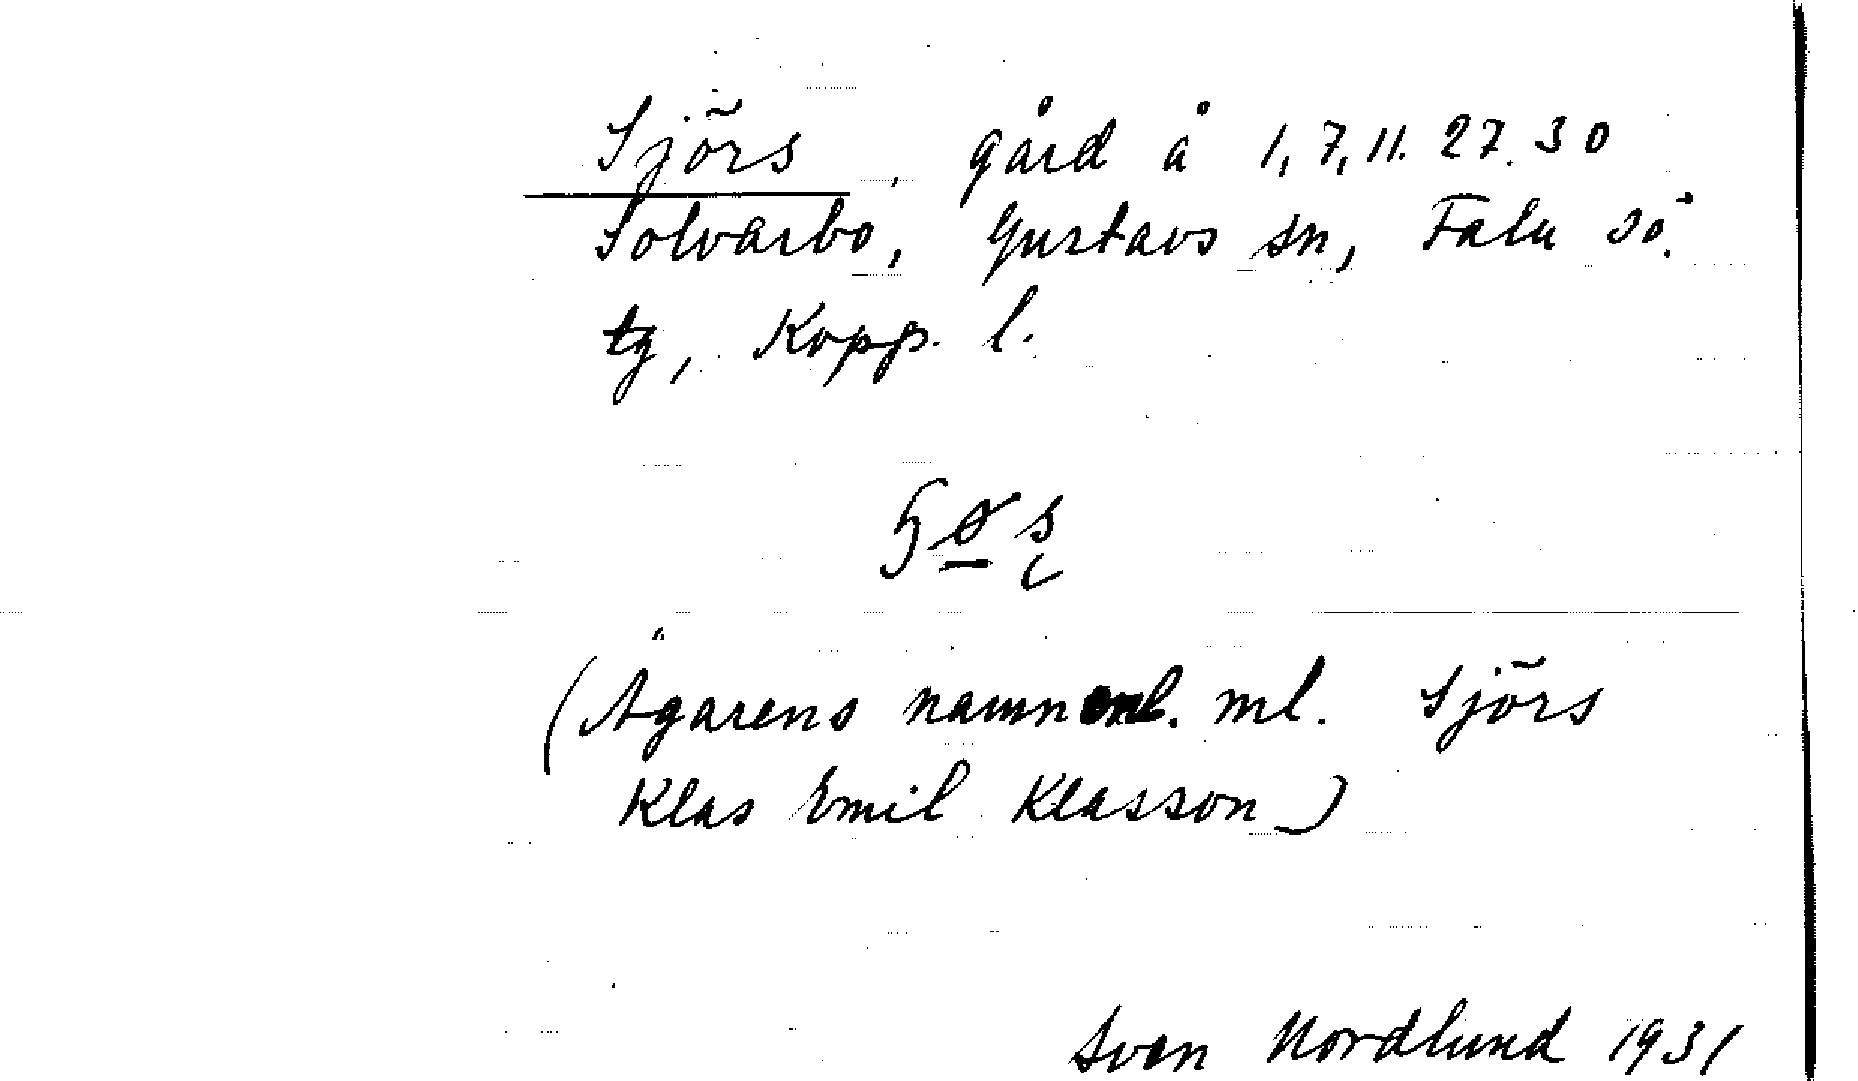 Sjörs, gård å 1, 7, 11. 27. 30
Solvarbo, Gustavs sn, Falu sö.
tg, Kopp. l.
(Ägarens namn enl. ml. Sjörs
Klas Emil Klasson)
Sven Nordlund 1931